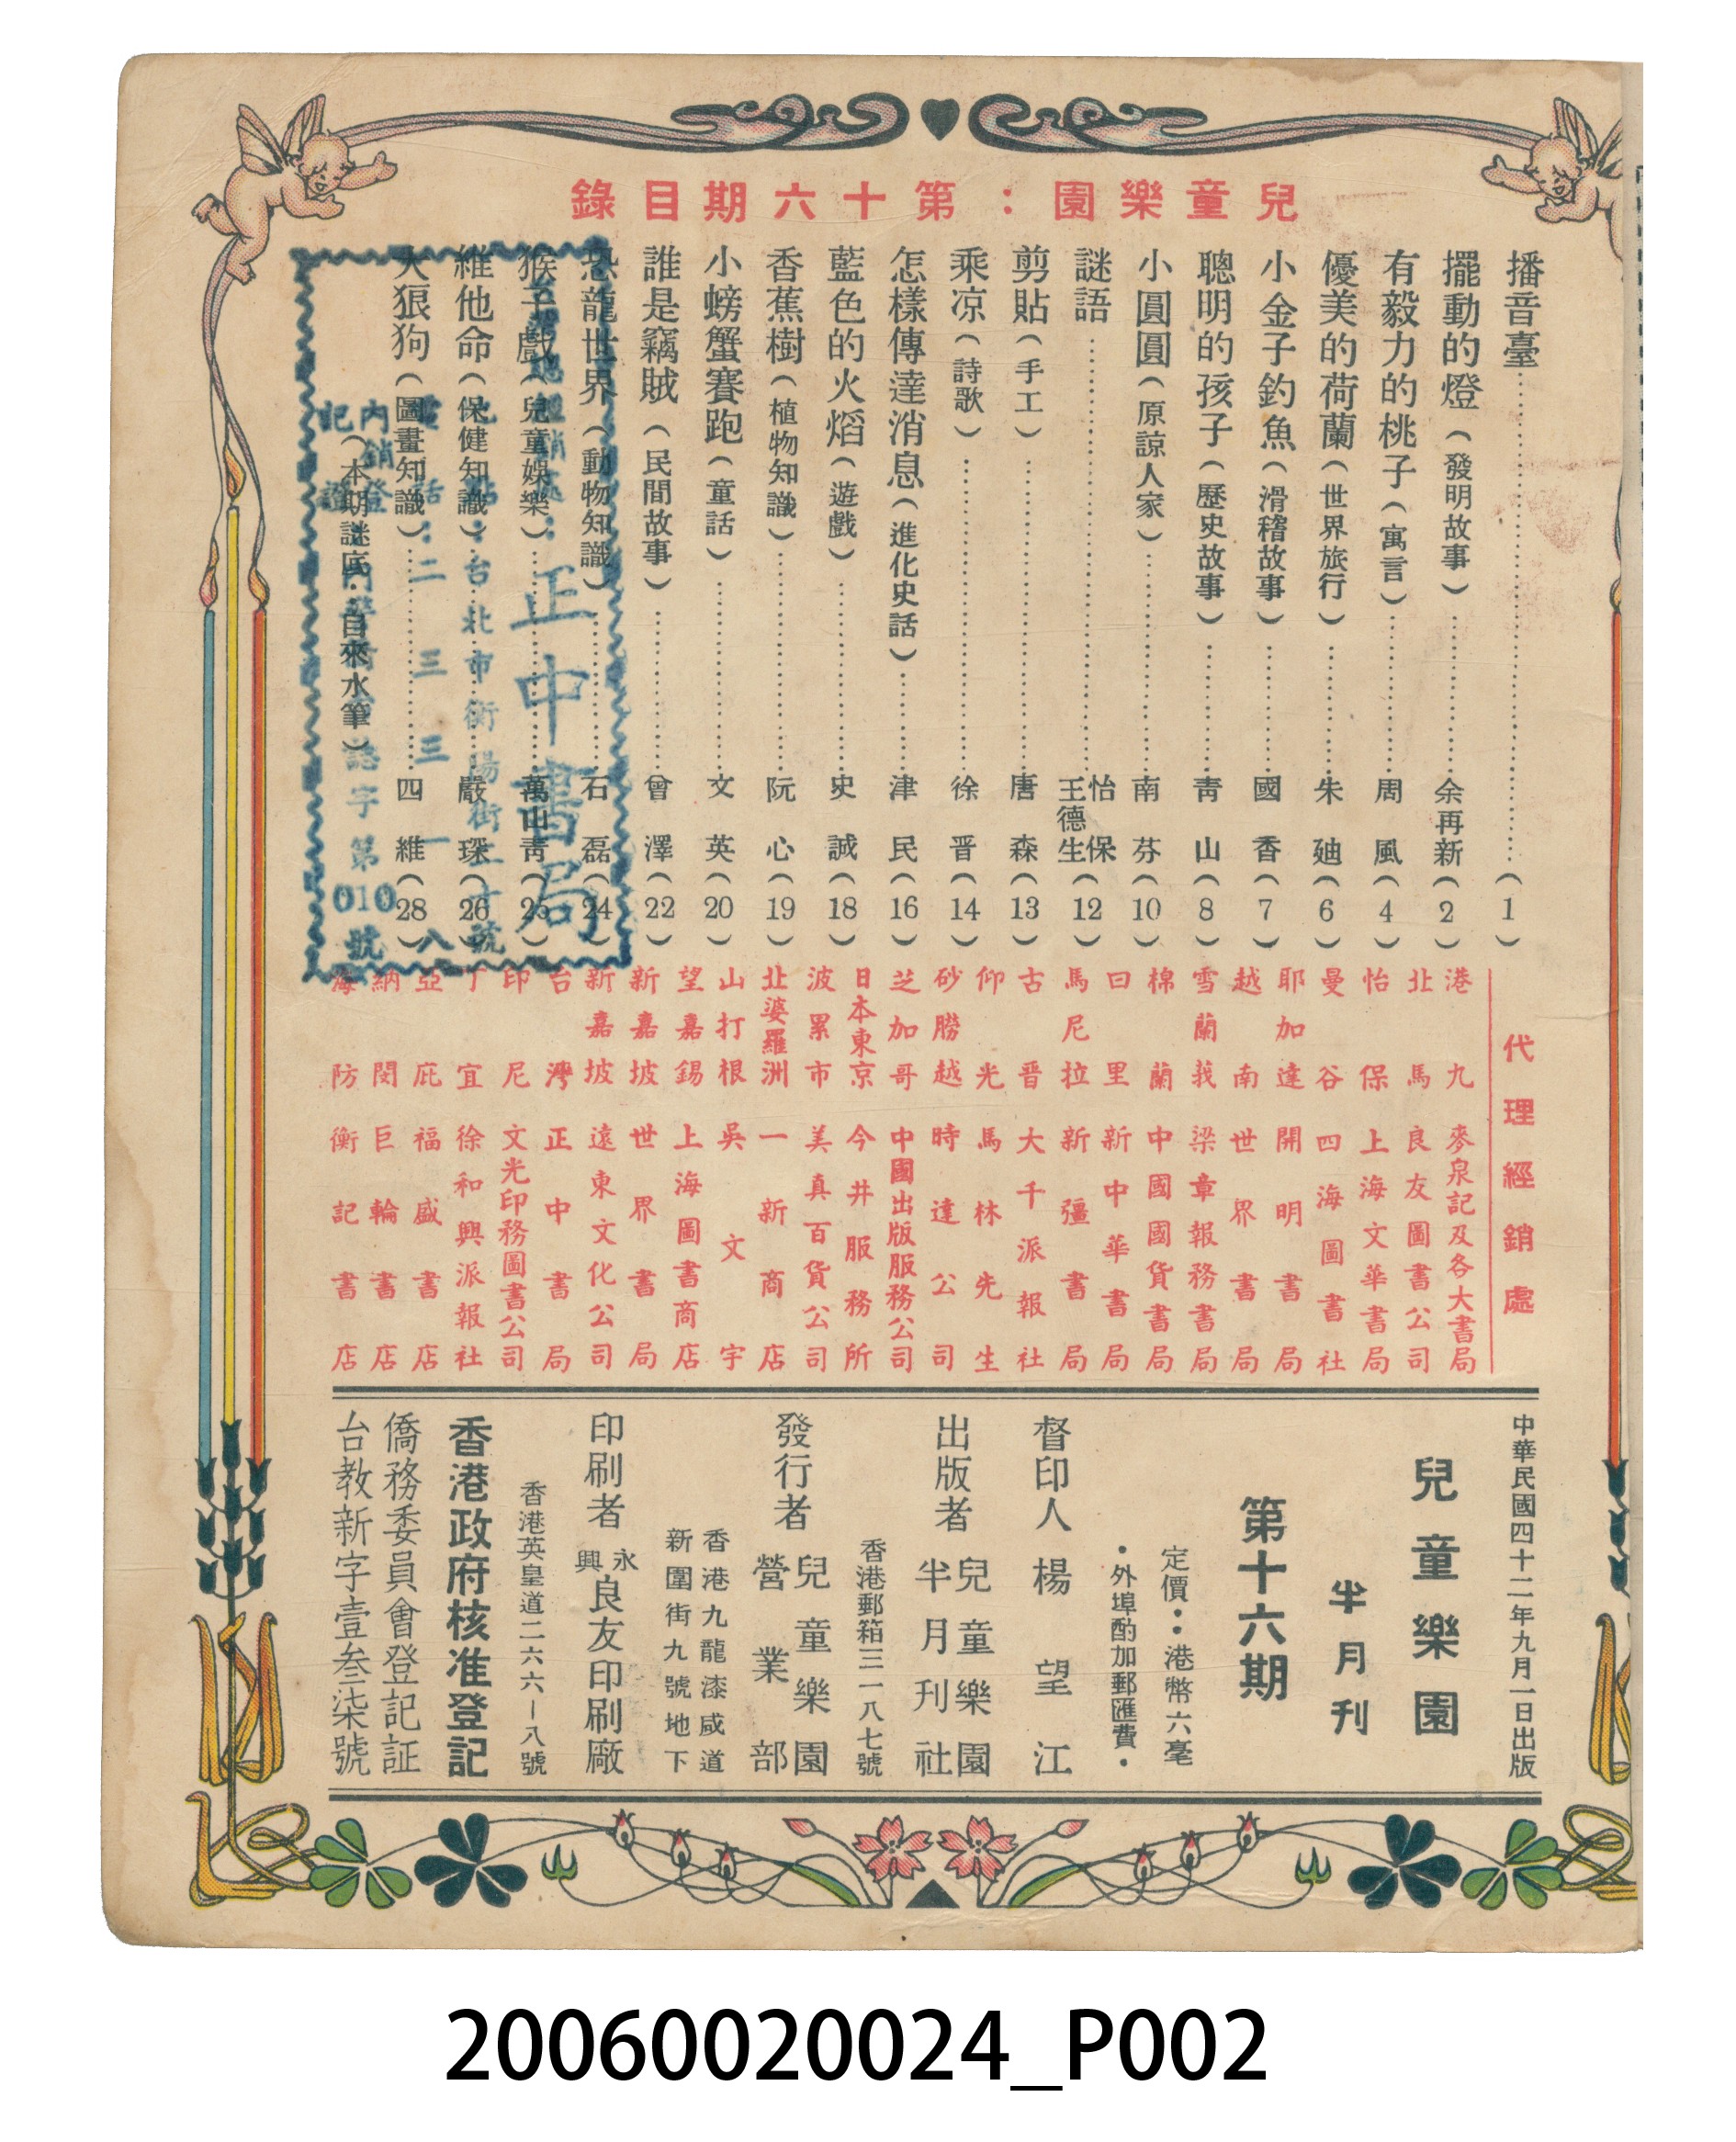 兒童樂園：第十六期目錄
播音臺……(1)
擺動的燈(發明故事)……余再新(2)
有毅力的桃子(寓言)……周風(4)
優美的荷蘭(世界旅行)……朱廸(6)
小金子釣魚(滑稽故事)……國香(7)
聰明的孩子(歷史故事)……青山(8)
小圓圓(原諒人家)……南芬(10)
謎語……怡保 王德生(12)
剪貼(手工)……唐森(13)
乘凉(詩歌)……徐晋(14)
怎樣傳達消息(進化史話)……津民(16)
藍色的火熖(遊戲)……史誠(18)
香蕉樹(植物知識)……阮心(19)
小螃蟹賽跑(童話)……文英(20)
誰是竊賊(民間故事)……曾澤(22)
恐龍世界(動物知識)……石磊(24)
猴子戲(兒童娛樂)……萬山青(25)
維他命(保健知識)……嚴琛(26)
大狼狗(圖畫知識)……四維(28)
(本期謎底：自來水筆)
正中書局
台北市衡陽街二十號
電話：二三三一八
內銷登記證
誌字第010號
代理經銷處
港九 麥泉記及各大書局
北馬 良友圖書公司
怡保 上海文華書局
曼谷 四海圖書社
耶加達 開明書局
越南 世界書局
雪蘭莪 梁章報務書局
棉蘭 中國國貨書局
曰里 新中華書局
馬尼拉 新彊書局
古晋 大千派報社
仰光 馬林先生
砂朥越 時達公司
芝加哥 中國出版服務公司
日本東京 今井服務所
波累市 美真百貨公司
北婆羅洲 一新商店
山打根 吳文宇
望嘉錫 上海圖書商店
新嘉坡 世界書局
新嘉坡 遠東文化公司
台灣 正中書局
印尼 文光印務圖書公司
丁宜 徐和興派報社
亞庇 福盛書店
納閔 巨輪書店
海防 衡記書店
中華民國四十二年九月一日出版
兒童樂園
半月刊
第十六期
定價：港幣六毫
·外埠酌加郵匯費·
督印人 楊望江
出版者 兒童樂園半月刊社
香港郵箱三一八七號
發行者 兒童樂園營業部
香港九龍漆咸道
新圍街九號地下
印刷者 永興良友印刷廠
香港英皇道二六六—八號
香港政府核准登記
僑務委員會登記証
台教新字壹叁柒號
20060020024_P002